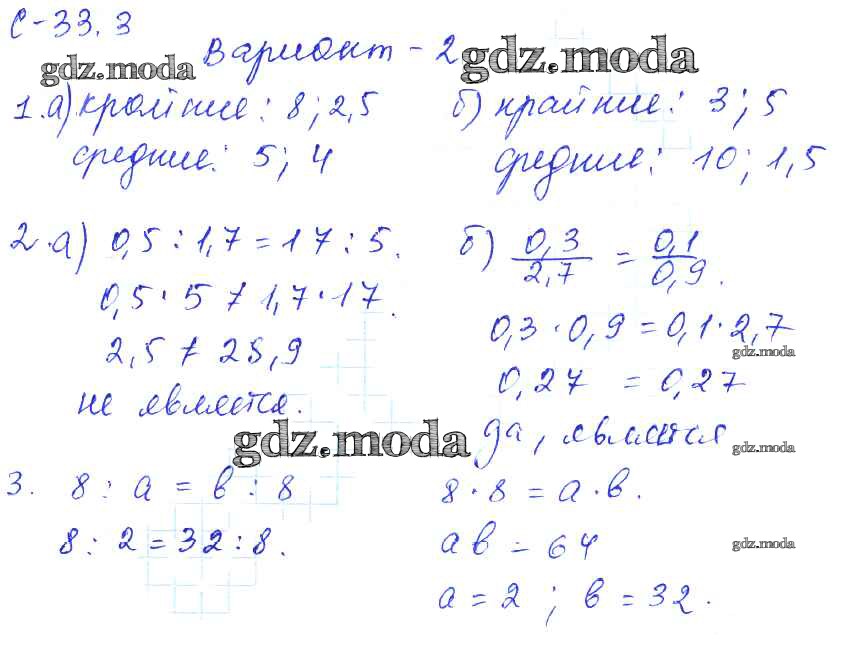 С-33.3
Вариант - 2
gdz.moda gdz.moda
1.а) крайние: 8; 2,5
средние: 5; 4
б) крайние: 3; 5
средние: 10; 1,5
2.а) 0,5 : 1,7 = 17 : 5.
0,5 · 5 ≠ 1,7 · 17.
2,5 ≠ 28,9
не является.
б) 0,3/2,7 = 0,1/0,9.
0,3 · 0,9 = 0,1 · 2,7
gdz.moda
0,27 = 0,27
да, является
gdz.moda
gdz.moda
3. 8 : а = в : 8
8 : 2 = 32 : 8.
8 · 8 = а · в.
ав = 64
gdz.moda
а = 2 ; в = 32.